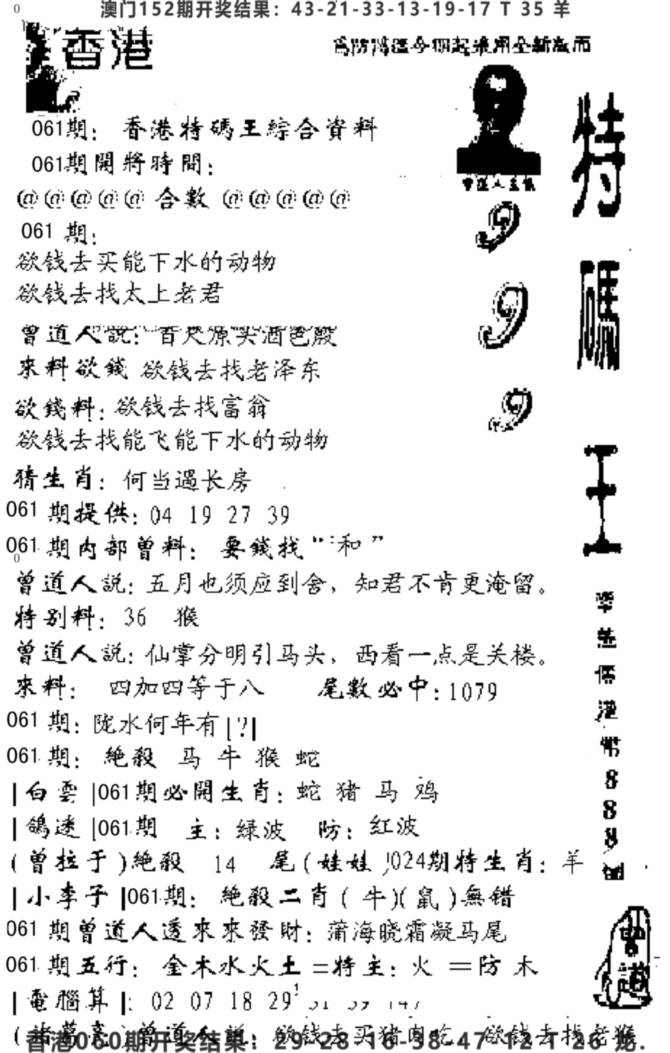 澳门152期开奖结果：43-21-33-13-19-17 T 35 羊
香港
061期：香港特碼王綜合資料
061期開將時間：
@@@@@ 合數 @@@@@
061 期：
欲钱去买能下水的动物
欲钱去找太上老君
曾道人說：
來料欲錢 欲钱去找老泽东
欲錢料：欲钱去找富翁
欲钱去找能飞能下水的动物
猜生肖：何当遇长房
061 期提供：04 19 27 39
061 期内部曾料：要錢找“和”
曾道人説：五月也须应到舍，知君不肯更淹留。
特别料：36 猴
曾道人説：仙掌分明引马头，西看一点是关楼。
來料： 四加四等于八 尾数必中：1079
061 期：陇水何年有|?|
061 期： 绝殺 马 牛 猴 蛇
|白雲|061期必開生肖：蛇 猪 马 鸡
|鴿迷|061期 主：绿波 防：红波
(曾拉于)絶殺 14 尾(娃娃)024期特生肖：羊
|小李子|061期：絶殺二肖(牛)(鼠)無错
061 期曾道人透來來發财：蒲海晓霜凝马尾
061 期五行：金木水火土二特主：火 二防 木
|電腦算|：02 07 18 29
香港060期开奖结果：29-28-16-38-47-12 T 26 兔.
特
碼
王
9
9
9
港
幣
8
8
8